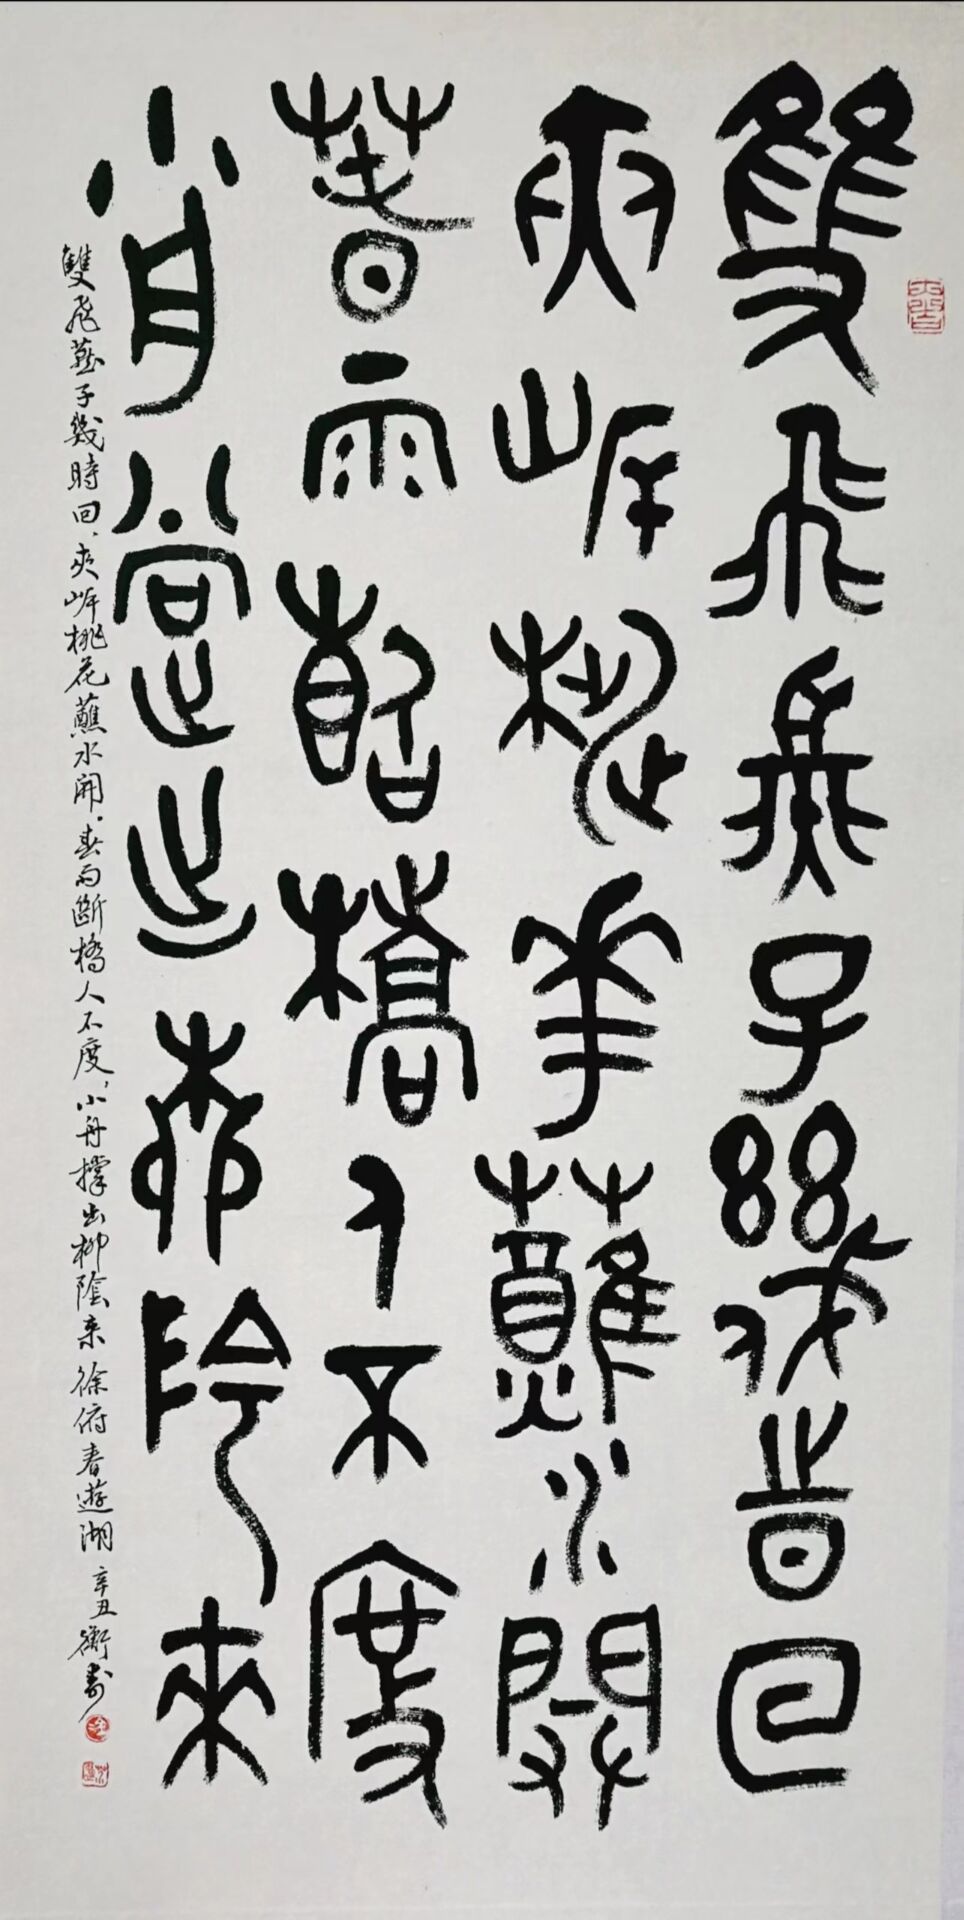 雙飛燕子幾旹回
夾岸桃華蘸水開
春雨斷橋人不度
小舟撐出柳陰來
雙飛燕子幾時回、夾岸桃花蘸水開。春雨斷橋人不度、小舟撐出柳陰来 徐俯春遊湖 辛丑